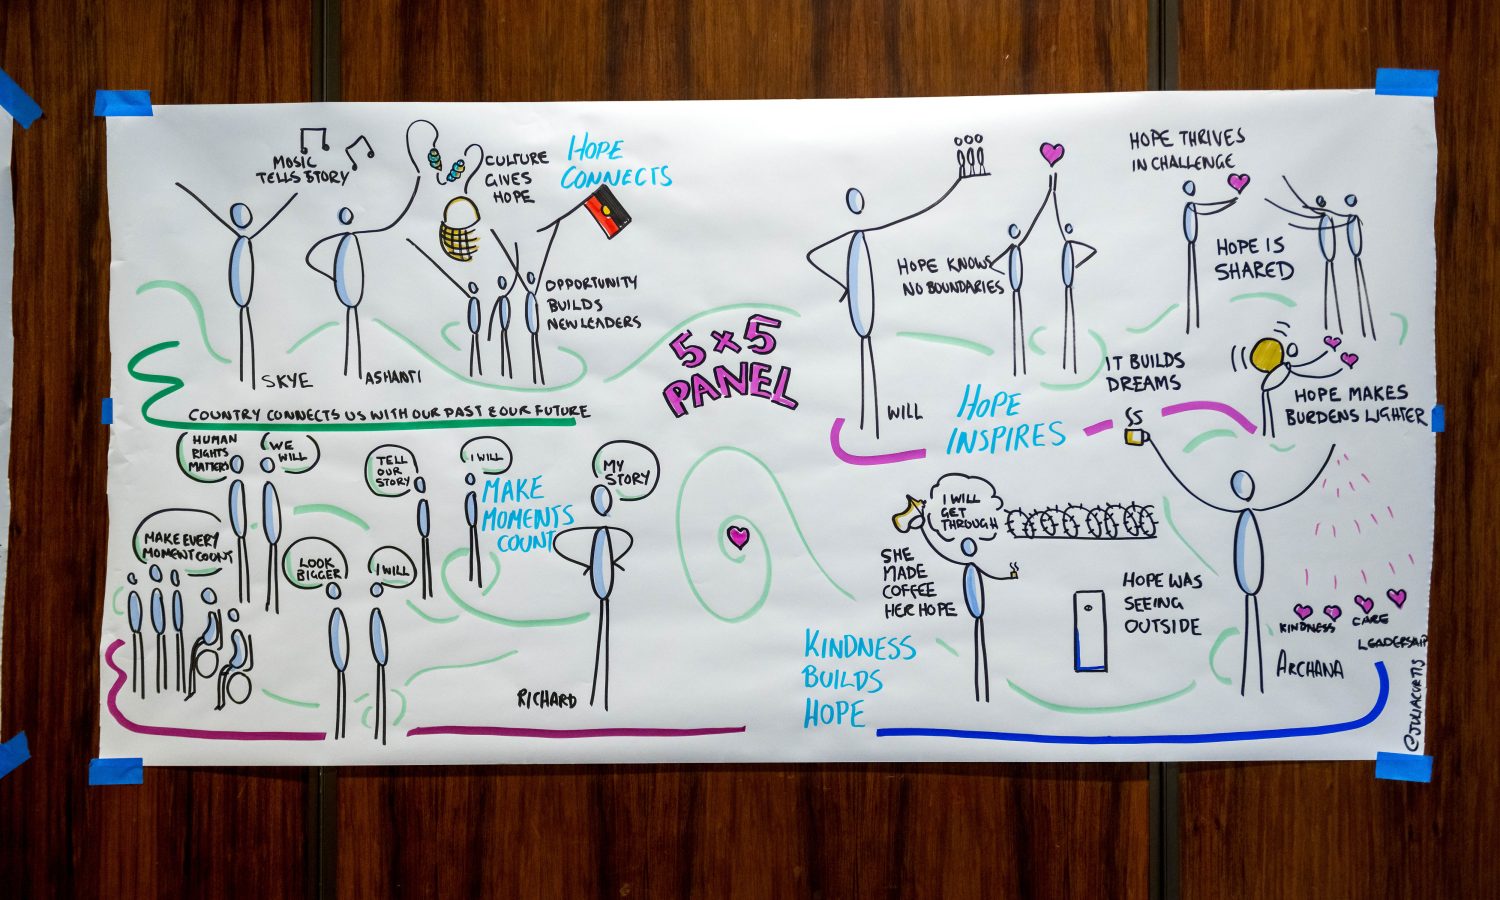 MUSIC
TELLS STORY
CULTURE
GIVES
HOPE
HOPE
CONNECTS
OPPORTUNITY
BUILDS
NEW LEADERS
SKYE
ASHANTI
COUNTRY CONNECTS US WITH OUR PAST & OUR FUTURE
5 x 5
PANEL
HOPE KNOWS
NO BOUNDARIES
HOPE THRIVES
IN CHALLENGE
HOPE IS
SHARED
IT BUILDS
DREAMS
HOPE MAKES
BURDENS LIGHTER
WILL
HOPE
INSPIRES
HUMAN
RIGHTS
MATTERS
WE
WILL
TELL
OUR
STORY
I WILL
MAKE
MOMENTS
COUNT
MY
STORY
MAKE EVERY
MOMENT COUNT
LOOK
BIGGER
I WILL
RICHARD
I WILL
GET
THROUGH
SHE
MADE
COFFEE
HER HOPE
HOPE WAS
SEEING
OUTSIDE
KINDNESS
BUILDS
HOPE
KINDNESS
CARE
LEADERSHIP
ARCHANA
@JULIACURTIS